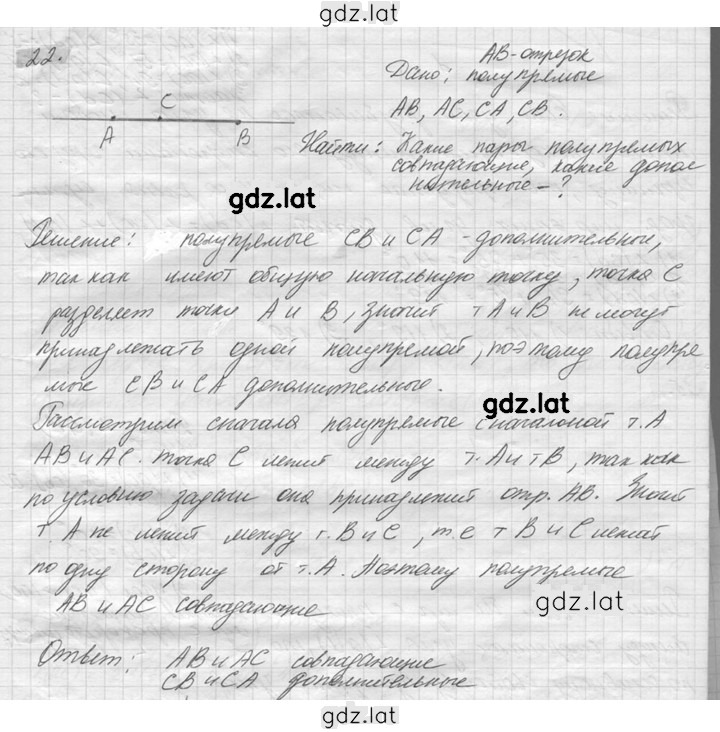 gdz.lat
22.
AB - отрезок
Дано: полупрямые
AB, AC, CA, CB.
C
A B
Найти: Какие пары полупрямых
совпадающие, какие допол
нительные - ?
gdz.lat
Решение: полупрямые CB и CA - дополнительные,
так как имеют общую начальную точку, точка C
разделяет точки A и B, значит т A и B не могут
принадлежать одной полупрямой, поэтому полупря
мые CB и CA дополнительные.
gdz.lat
Рассмотрим сначала полупрямые с началом т. A
AB и AC. точка C лежит между т. A и т B, так как
по условию задачи она принадлежит отр. AB. Значит
т. A не лежит между т. B и C, т.е т B и C лежат
по одну сторону от т. A. Поэтому полупрямые
AB и AC совпадающие
gdz.lat
Ответ: AB и AC совпадающие
CB и CA дополнительные
gdz.lat